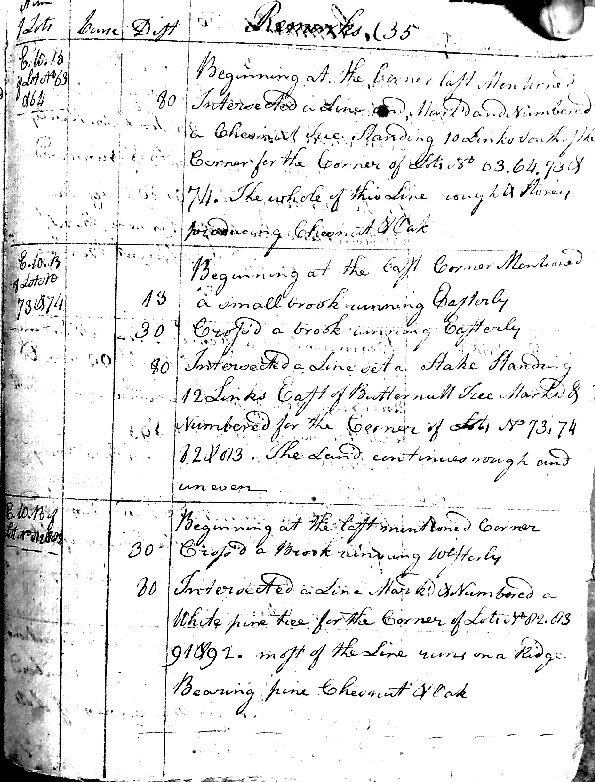 of Lots Course Dist Remarks. (35
E. 10. N
of Lots No 63
&64
Beginning at the Corner last Mentioned
80 Intersected a Line and Markd and Numbered
a Chesnut tree Standing 10 Links South of the
Corner for the Corner of Lots No 63. 64. 73 &
74. The whole of this Line rough & Stoney
producing Chesnut & Oak
E. 10. N
of Lots No
73 & 74
Beginning at the last Corner Mentioned
13 a small brook running Easterly
30 Cross'd a brook running Easterly
80 Intersected a Line set a Stake Standing
12 Links East of Butternutt Tree Markd &
Numbered for the Corner of Lots No 73. 74
82 & 83. The Land continues rough and
uneven
E. 10. N of
Lots No 82 & 83
Beginning at the last mentioned Corner
30 Cross'd a Brook running Westerly
80 Intersected a Line Mark'd & Numbered a
White pine tree for the Corner of Lots No 82. 83
91 & 92. most of the Line runs on a Ridge
Bearing pine Chesnut & Oak